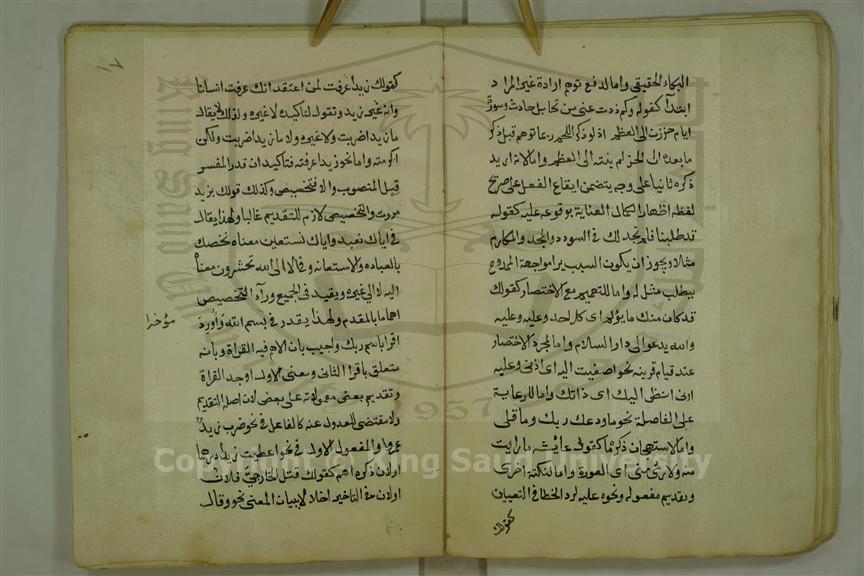 البكاء الحقيقي واما لدفع توهم ارادة غير المراد
ابتدآ كقوله وكم ذدت عني من تحامل حادث وسورة
ايام حززن الى العظم اذ لو ذكر اللحم ربما توهم قبل ذكر
ما بعده ان الحز لم ينته الى العظم واما لانه اريد
ذكره ثانيا على وجه يتضمن ايقاع الفعل على صريح
لفظه اظهارا لكمال العناية بوقوعه عليه كقوله
قد طلبنا فلم نجد لك في السودد والمجد والمكارم
مثلا ويجوز ان يكون السبب ترك مواجهة الممدوح
بطلب مثل له واما للتعميم مع الاختصار كقولك
قد كان منك ما يؤلم اى كل احد وعليه
والله يدعو الى دار السلام واما لمجرد الاختصار
عند قيام قرينه نحو اصغيت اليه اى اذنى وعليه
ارنى انظر اليك اى ذاتك واما للرعاية
على الفاصلة نحو ما ودعك ربك وما قلى
واما لاستهجان ذكره كقول عائشه ما رايت
منه ولا راى منى اى العورة واما لنكتة اخرى
وتقديم مفعوله ونحوه عليه لرد الخطا في التعيين
كقولك
١٧
كقولك زيدا عرفت لمن اعتقد انك عرفت انسانا
وانه غير زيد وتقول لتاكيده لا غيره ولذلك لا يقال
ما زيدا ضربت ولا غيره ولا ما زيدا ضربت ولكن
اكرمته واما نحو زيدا عرفته فتاكيد ان قدر المفسر
قبل المنصوب والا فتخصيص وكذلك قولك بزيد
مررت والتخصيص لازم للتقديم غالبا ولهذا يقال
في اياك نعبد واياك نستعين معناه نخصك
بالعباده والاستعانه وفي لالى الله تحشرون معناه
اليه لا الى غيره ويفيد في الجميع ورآء التخصيص
اهتماما بالمقدم ولهذا يقدر في بسم الله واورد
مؤخرا
اقرا باسم ربك واجيب بان الاهم فيه القراة وبانه
متعلق باقرا الثانى ومعنى الاول اوجد القراة
وتقديم بعض معمولاته على بعض لان اصله التقديم
ولا مقتضى للعدول عنه كالفاعل في نحو ضرب زيد
عمروا والمفعول الاول في نحو اعطيت زيدا درهما
او لان ذكره اهم كقولك قتل الخارجي فلان
او لان في التاخير اخلالا ببيان المعنى نحو وقال
Copyright © King Saud University
King Saud University
1957